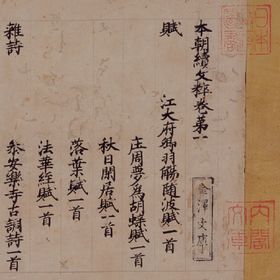 本朝續文粹卷第一
賦
江大府卿羽觴隨波賦一首
庄周夢為胡蝶賦一首
秋日閑居賦一首
落葉賦一首
法華經賦一首
雜詩
參安樂寺古調詩一首
金澤文庫
日本
內閣
文庫